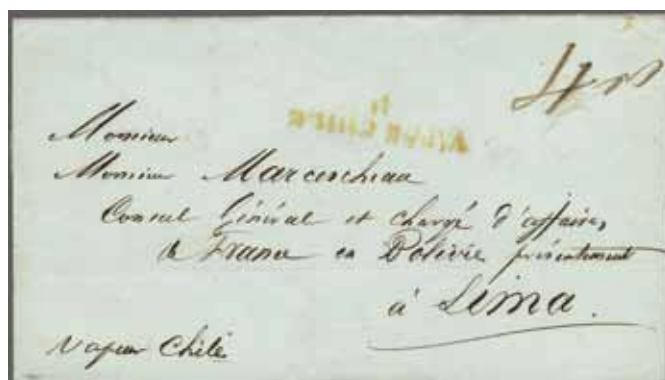 4
Monsieur
Monsieur Marcescheau
Consul Général et chargé d'affaires
de France en Bolivie présentement
à Lima.
Vapeur Chile